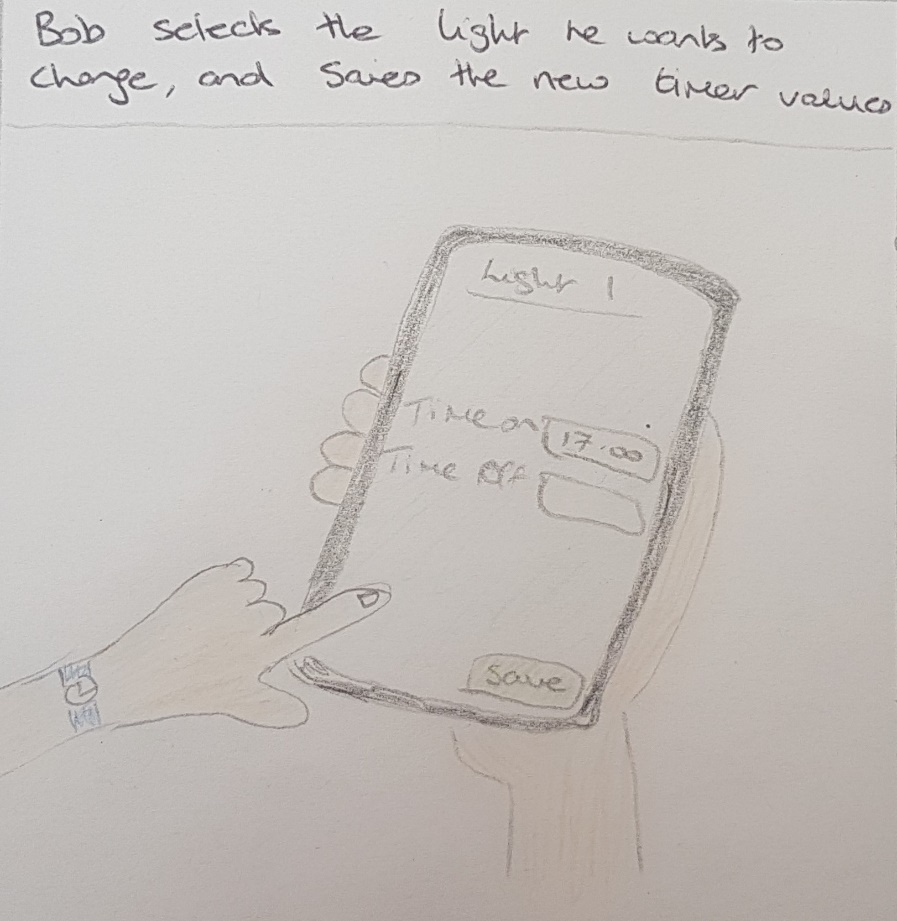 Bob selects the light he wants to
change, and saves the new timer values
Light 1
Time on 17.00
Time Off
Save